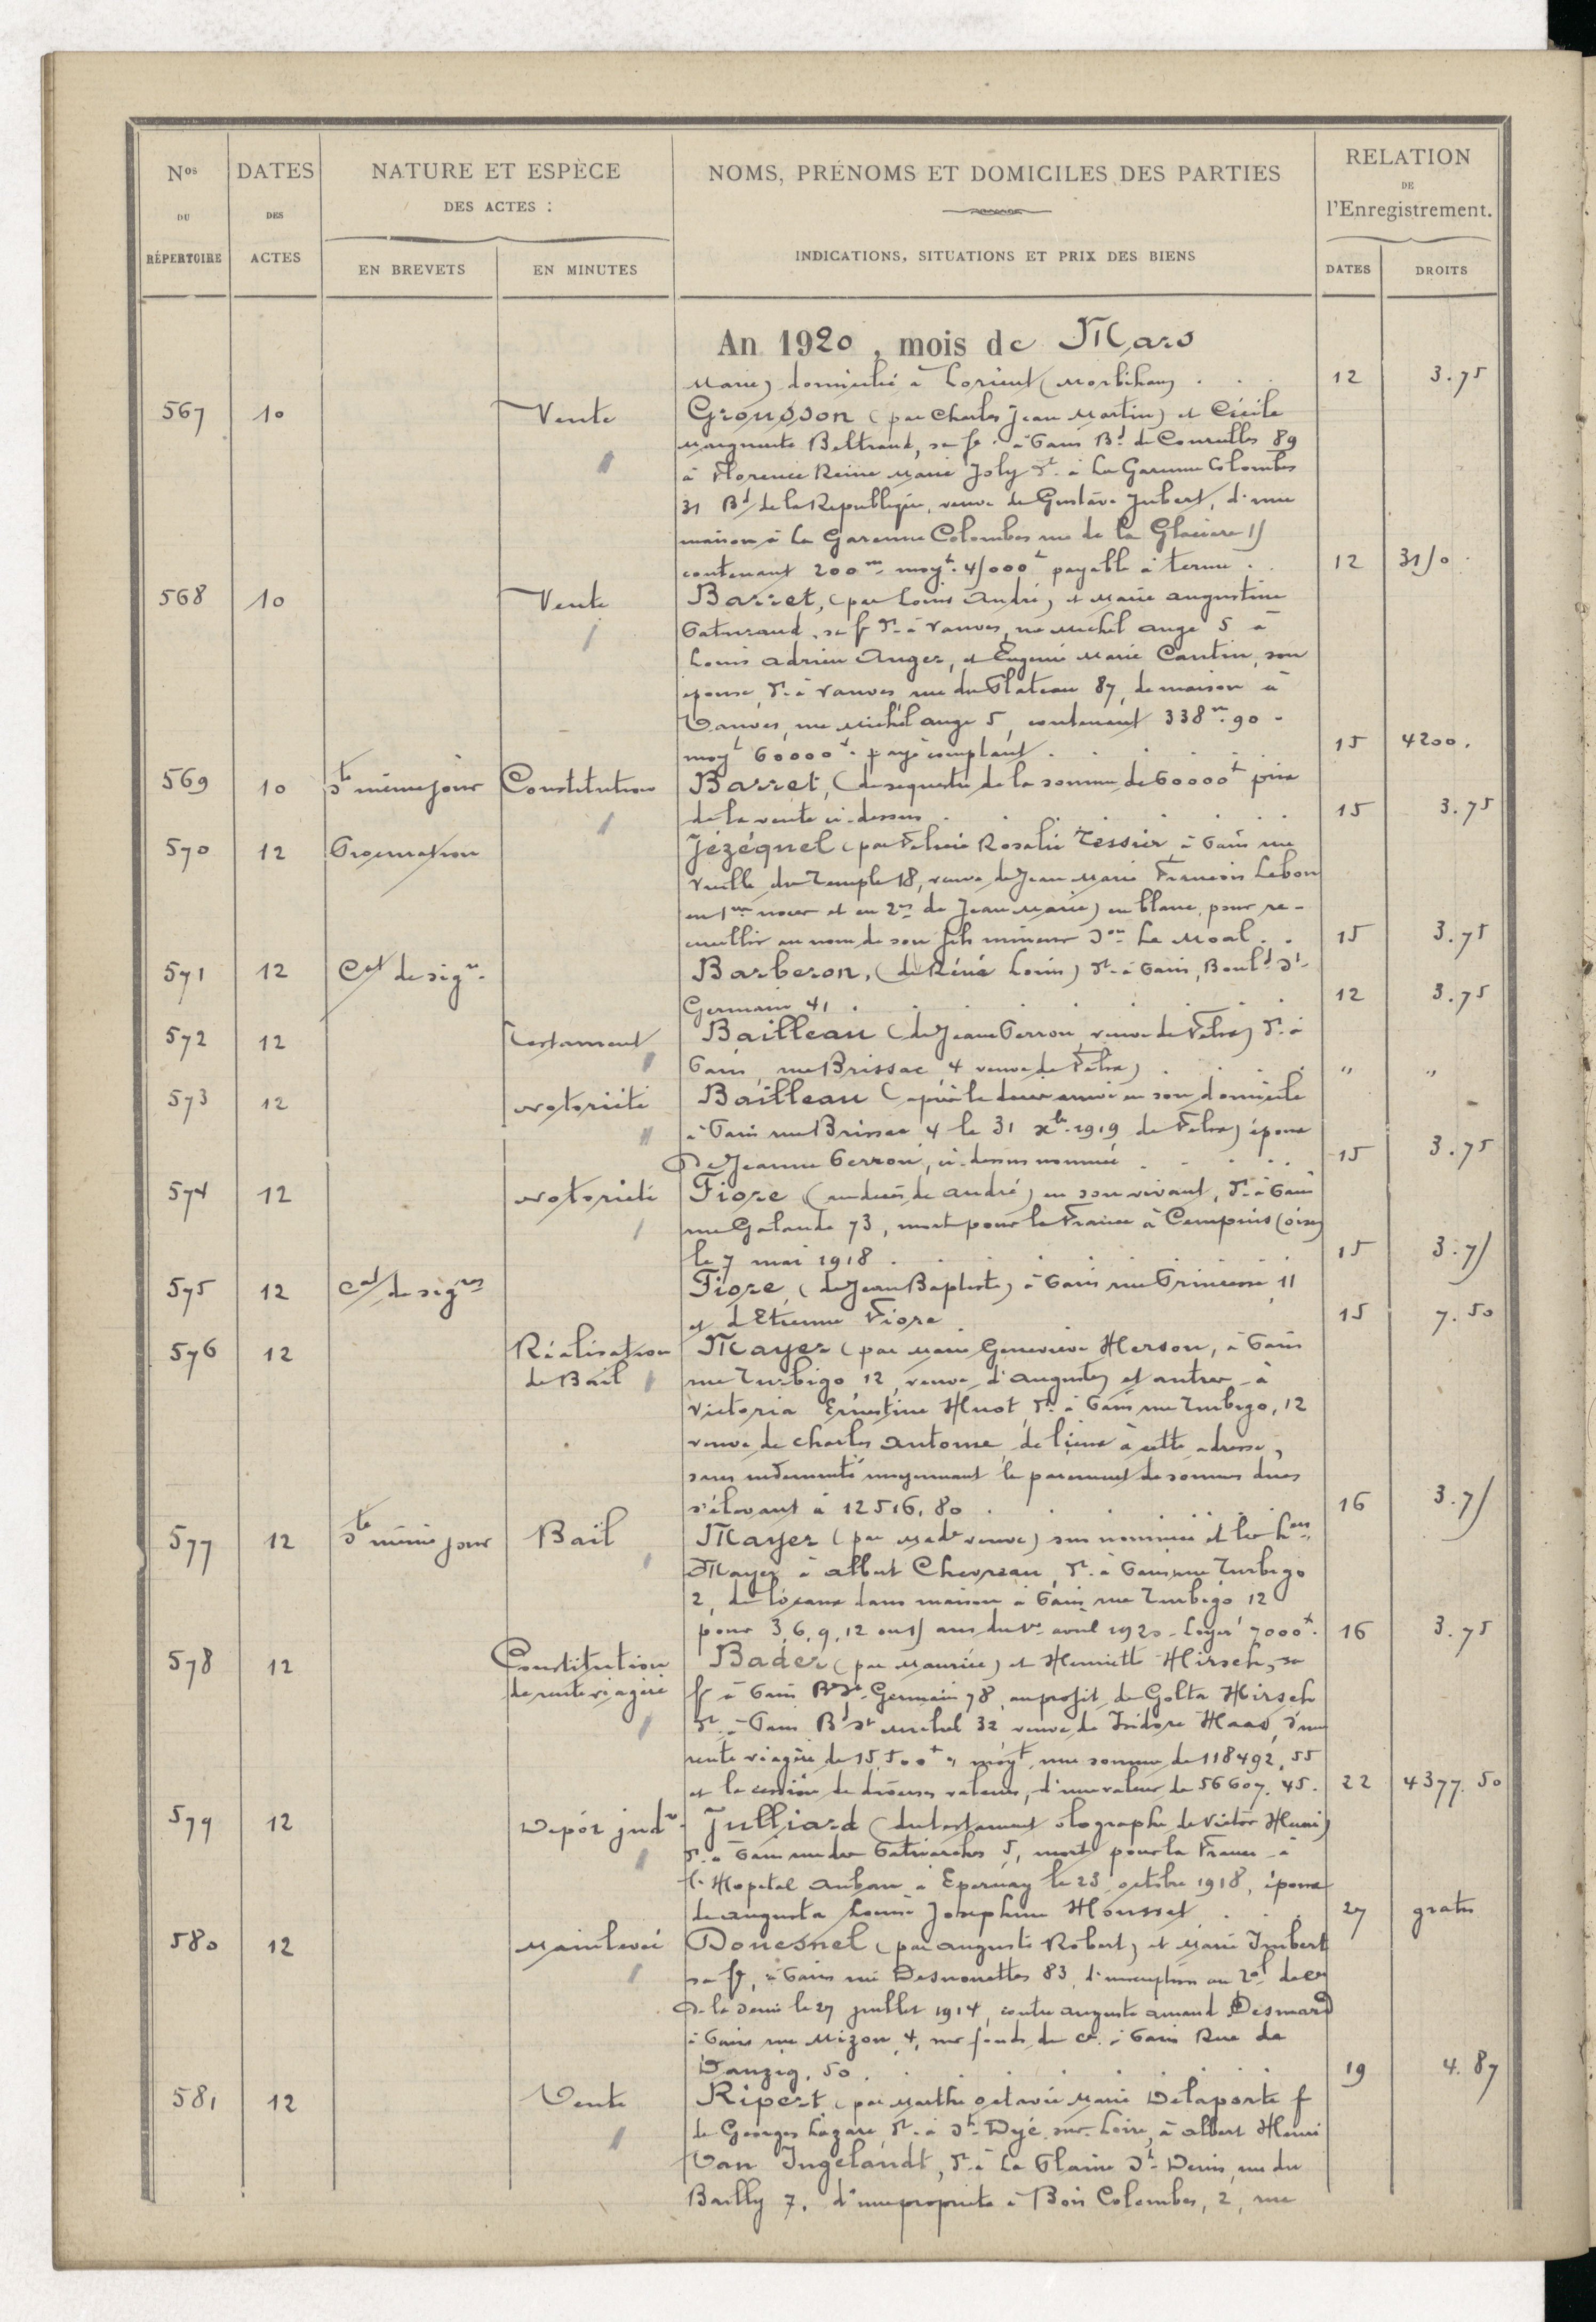 Nos DU RÉPERTOIRE
DATES DES ACTES
NATURE ET ESPÈCE DES ACTES :
EN BREVETS
EN MINUTES
NOMS, PRÉNOMS ET DOMICILES DES PARTIES
INDICATIONS, SITUATIONS ET PRIX DES BIENS
RELATION DE l'Enregistrement.
DATES
DROITS
An 1920, mois de Mars
Marie) domicilié à Lorient (Morbihan) . . 12 3.75
567 10 Vente Grousson (par Charles Jean Martin) et Cécile
Marguerite Beltrand, sa fe. à Paris Bd de Courcelles 89
à Florence Reine Marie Joly dt à La Garenne Colombes
31 Bd de la République, veuve de Gustave Jubert, d'une
maison à La Garenne Colombes rue de la Glacière 15
contenant 200m moyt 45000f payable à terme . . 12 3150.
568 10 Vente Barret, (par Louis André) et Marie Augustine
sa f dt à Vanves, rue Michel Ange 5 à
Louis Adrien Auger, et Eugénie Marie Cantin, son
épouse, dt à Vanves rue du Plateau 87, de maison à
Vanves, rue Michel ange 5, contenant 338m.90 -
moyt 60000f. payé comptant . . . . 15 4200.
569 10 dt même jour Constitution Barret, (de séquestre de la somme de 60000f prix
de la vente ci-dessus . . . . 15 3.75
570 12 Procuration Jézéquel (par Félicie Rosalie Tessier à Paris rue
Vieille du Temple 18, veuve de Jean Marie François Lebon
en 1res noces et en 2es de Jean Marie) en blanc, pour re-
cueillir au nom de son fils mineur son Le Moal . . 15 3.75
571 12 Cat de sigre. Barberon, (de Réné Louis) dt à Paris, Bould St-
Germain 41 . . . . 12 3.75
572 12 Testament Bailleau (de Jeanne Perron, veuve de Félix) dt à
Paris, rue Brissac, 4 veuve de Félix) . . . . " "
573 12 Notoriété Bailleau (après le décès arrivé en son domicile
à Paris rue Brissac 4 le 31 xbre 1919 de Félix) époux
De Jeanne Perron, ci-dessus nommée . . . . 15 3.75
574 12 Notoriété Fiore (au décès de André) en son vivant, dt à Paris
rue Galande 73, mort pour la France à Cempuis (oise)
le 7 mai 1918 . . . . 15 3.75
575 12 Cat de sigres Fiore, (de Jean Baptiste) à Paris rue Princesse 11
et d'Etienne Fiore 15 7.50
576 12 Réalisation Mayer (par Marie Geneviève Herson, à Paris
de Bail rue Turbigo 12, veuve d'Auguste) et autres - à
Victoria Ernestine Huot, dt à Paris rue Turbigo, 12
veuve de Charles Antoine, de lieux à cette adresse,
sans indemnité moyennant le paiement de sommes dues
s'élevant à 12516,80 . . . . 16 3.75
577 12 dt même jour Bail Mayer (par Made veuve) sus nommée et les hers
Mayer à Albert Chevreau, dt à Paris rue Turbigo
2, de locaux dans maison à Paris rue Turbigo 12
pour 3, 6, 9, 12 ou 15 ans du 1er avril 1920 - Loyer 7000f. 16 3.75
578 12 Constitution Bader (par Maurice) et Henriette Hirsch, sa
de rente viagère f à Paris Bd St-Germain 78, au profit de Golta Hirsch
dt à Paris Bd St Michel 32 veuve de Isidore Haas, d'une
rente viagère de 15.500f, moyt une somme de 118492,55
et la cession de diverses valeurs, d'une valeur de 56607.45. 22 4377.50
579 12 Dépôt judre Julliard (du testament olographe de Victor Henri)
dt à Paris rue des Patriarches 5, mort pour la France - à
l'Hopital Auban à Epernay le 23 octobre 1918, époux
de Augusta Louise Josephine Housset . . . 27 gratis
580 12 Mainlevée Douesnel (par Auguste Robert) et Marie Imbert
sa fe, à Paris rue Desnouettes 83, d'inscription au
De la Seine le 27 juillet 1914, contre Auguste Amand Desmard
à Paris rue Mizon, 4, sur fonds de ce. à Paris Rue de
Danzig, 50 . . . . 19 4.87
581 12 Vente Ripert (par Marthe Octavie Marie Delaporte f
de Georges Lazare, dt à St-Dyé-sur-Loire, à Albert Henri
Van Ingelandt, dt à La Plaine St-Denis, rue du
Bailly 7, d'une propriété à Bois Colombes, 2, rue